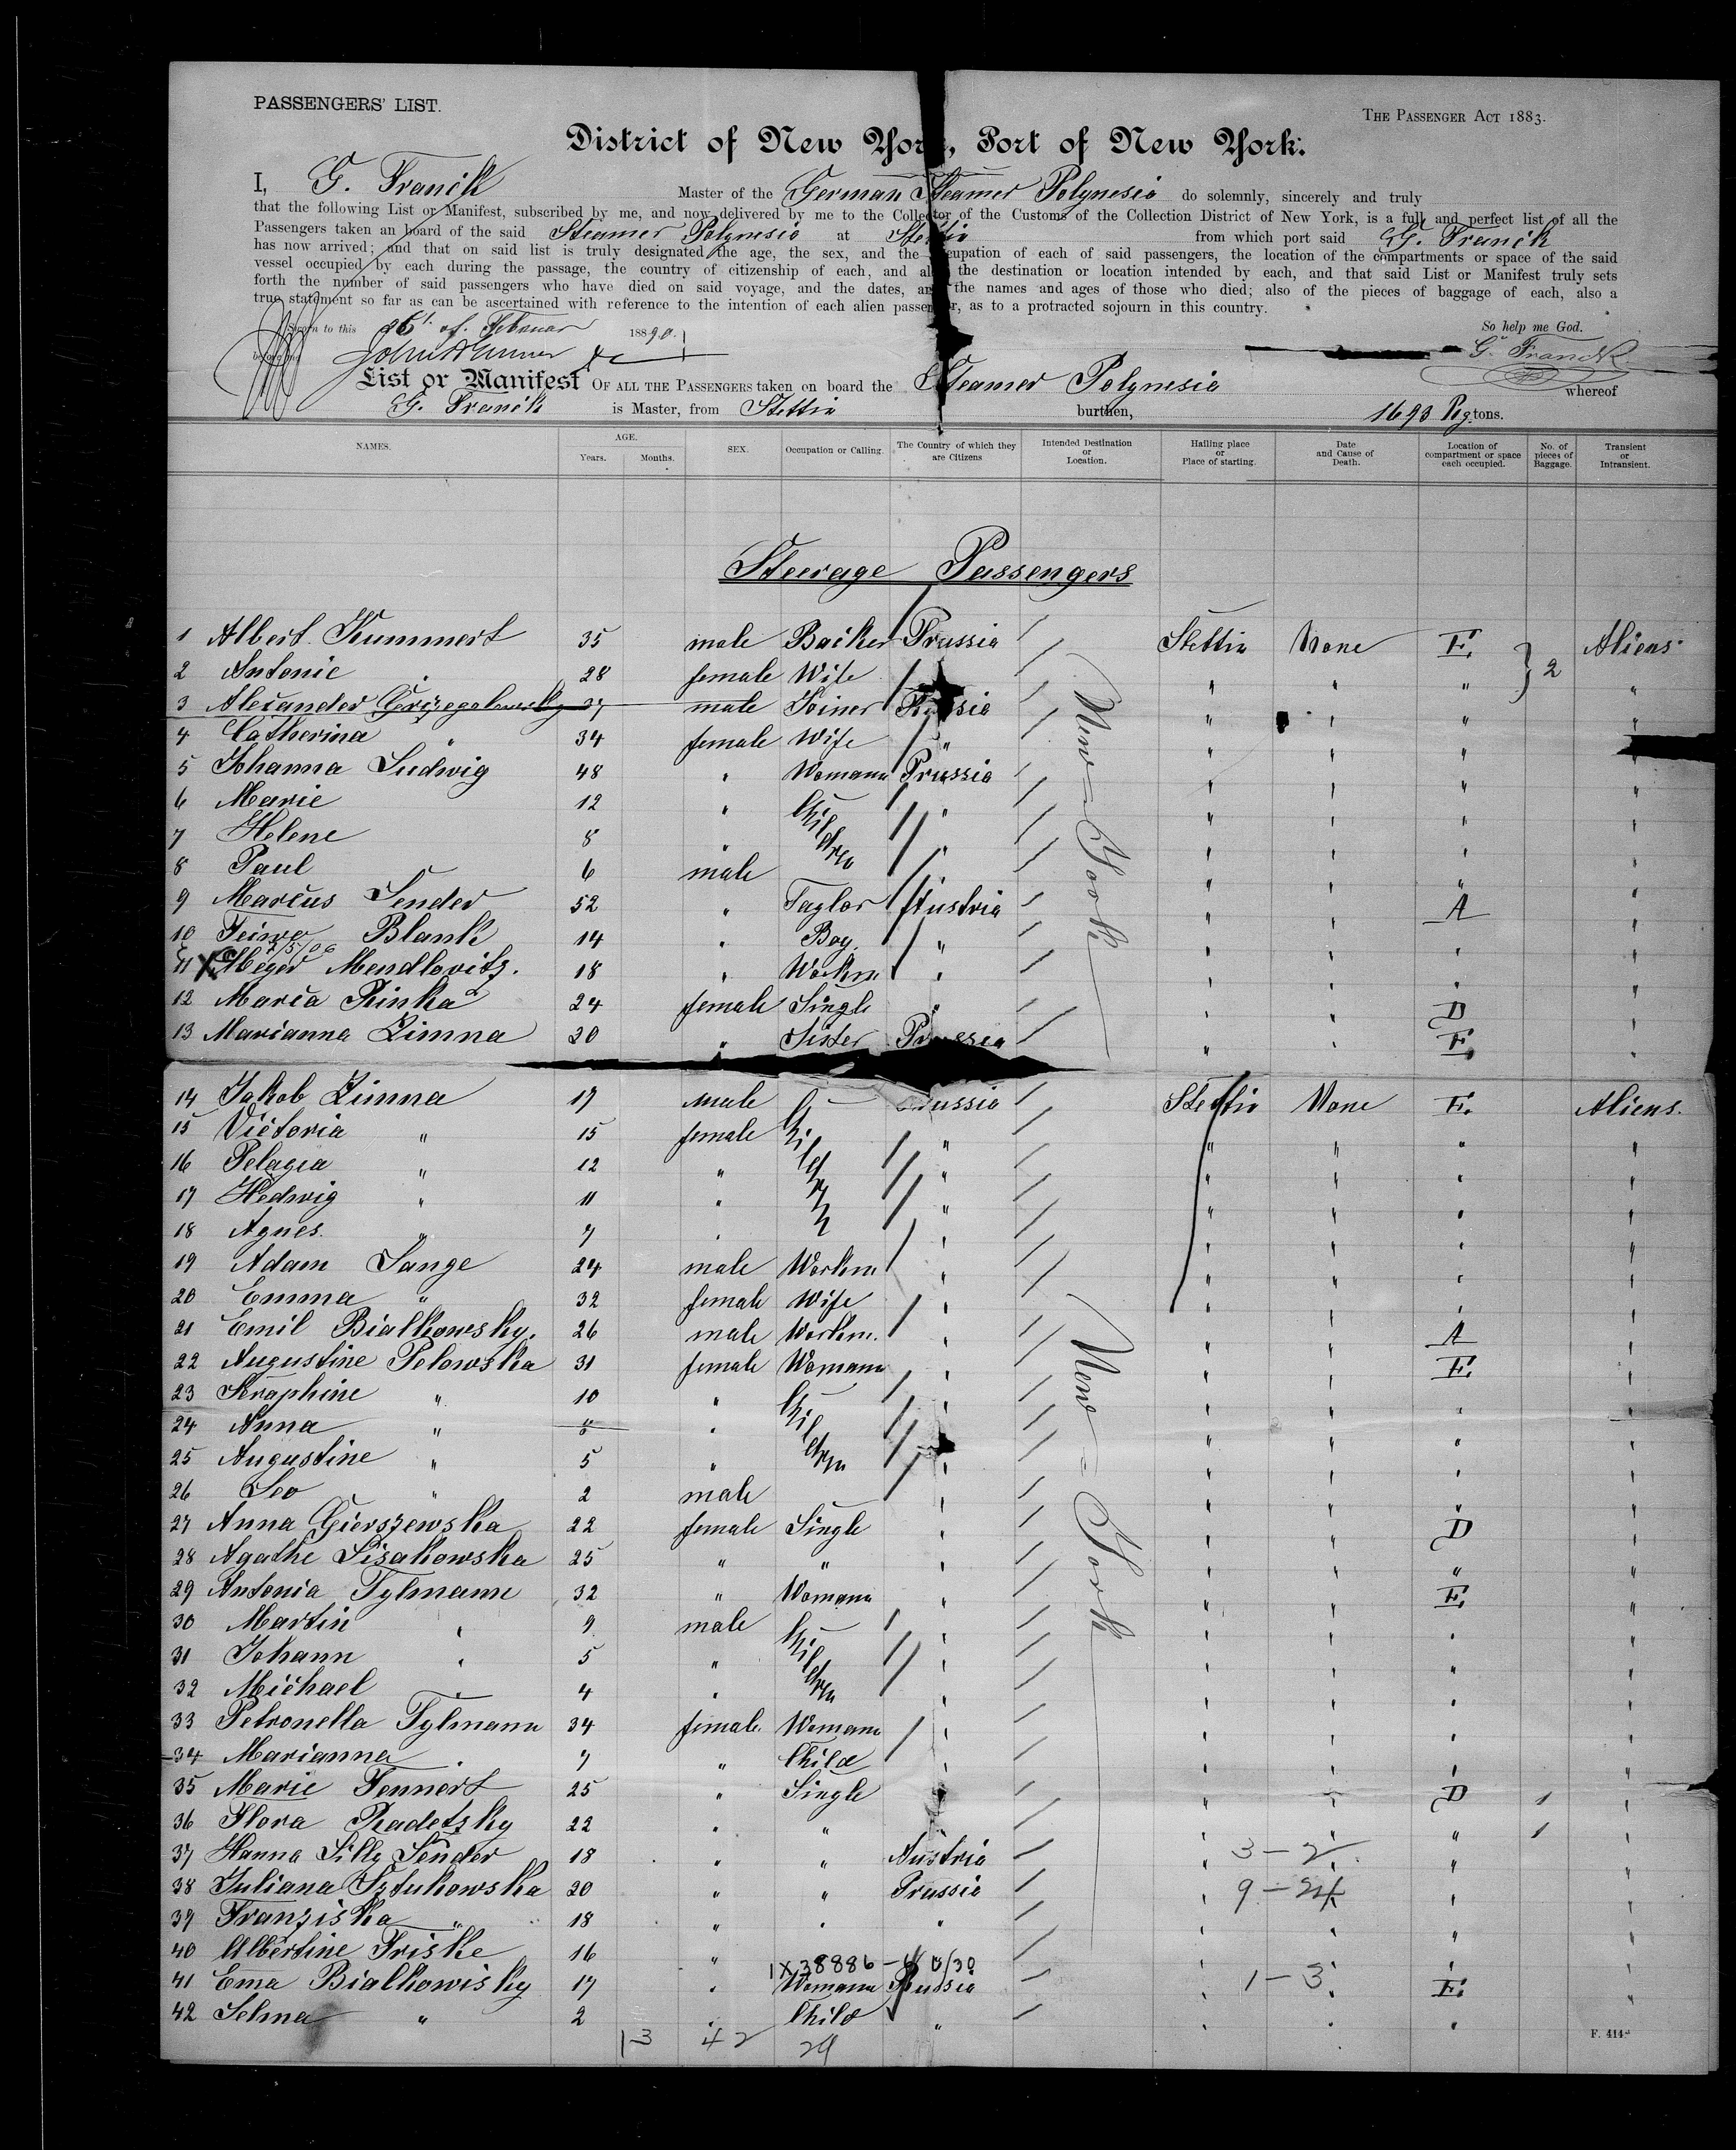 PASSENGERS' LIST.
THE PASSENGER ACT 1883.
District of New York, Port of New York.
I, G. Franck Master of the German Steamer Polynesia do solemnly, sincerely and truly
that the following List or Manifest, subscribed by me, and now delivered by me to the Collector of the Customs of the Collection District of New York, is a full and perfect list of all the
Passengers taken an board of the said Steamer Polynesia at Stettin from which port said G. Franck
has now arrived; and that on said list is truly designated the age, the sex, and the occupation of each of said passengers, the location of the compartments or space of the said
vessel occupied by each during the passage, the country of citizenship of each, and also the destination or location intended by each, and that said List or Manifest truly sets
forth the number of said passengers who have died on said voyage, and the dates, and the names and ages of those who died; also of the pieces of baggage of each, also a
true statement so far as can be ascertained with reference to the intention of each alien passenger, as to a protracted sojourn in this country.
Sworn to this 26t. of. Februar 1890.
So help me God.
before me
G. Franck
List or Manifest OF ALL THE PASSENGERS taken on board the Steamer Polynesia whereof
G. Franck is Master, from Stettin burthen, 1693 Reg. tons.
NAMES. AGE. Years. Months. SEX. Occupation or Calling. The Country of which they are Citizens Intended Destination or Location. Hailing place or Place of starting. Date and Cause of Death. Location of compartment or space each occupied. No. of pieces of Baggage. Transient or Intransient.
Steerage Passengers
1 Albert Kummert 35 male Backer Prussia Stettin None E. 2 Aliens.
2 Antonie " 28 female Wife " " " "
3 Alexander 37 male Joiner Russia " " " "
4 Catherina " 34 female Wife " " " " "
5 Johanna Ludwig 48 " Womann Prussia " " " "
6 Marie 12 " Children " " " " "
7 Helene 8 " " " " " "
8 Paul 6 male " " " " "
9 Marcus Sender 52 " Taylor Austria " " A "
10 Feiwe Blank 14 " Boy. " " " " "
7/5/06
11 X Meyer Mendlovitz. 18 " Workm " " " " "
12 Maria Rinka 24 female Single " " " D "
13 Marianna Zimna 20 " Sister Prussia " " E. "
14 Jakob Zimna 17 male Children Prussia Stettin None E. Aliens.
15 Victoria " 15 female " " " " "
16 Pelagia " 12 " " " " " "
17 Hedwig " 11 " " " " " "
18 Agnes. " 7 " " " " " "
19 Adam Lange 24 male Workm " " " " "
20 Emma " 32 female Wife " " " " "
21 Emil Bialkowsky. 26 male Workm. " " " A "
22 Augustine Pelowska 31 female Womann " " " E. "
23 Seraphine " 10 " Children " " " " "
24 Anna " 8 " " " " " "
25 Augustine " 5 " " " " " "
26 Leo " 2 male " " " " "
27 Anna Gierszewska 22 female Single " " " D "
28 Agathe Lisakowska 25 " " " " " " "
29 Antonia Tylmann 32 " Womann " " " E. "
30 Martin " 9 male Children " " " " "
31 Johann " 5 " " " " " "
32 Michael " 4 " " " " " "
33 Petronella Tylmann 34 female Womann " " " " "
34 Marianna " 7 " Child " " " " "
35 Marie Tennert 25 " Single " " " D 1 "
36 Flora Radetzky 22 " " " " " " 1 "
37 Hanna Lilly Sender 18 " " Austria " 3-2 " "
38 Juliana Sztukowska 20 " " Prussia " 9-24 " "
39 Franziska " 18 " " " " " " "
40 Albertine Friske 16 " " " " "
1X38886
41 Ema Bialkowisky 17 " Womann Russia " 1-3 E. "
42 Selma " 2 " Child " " " " "
New-York
New-York
13 42 29
F. 414.